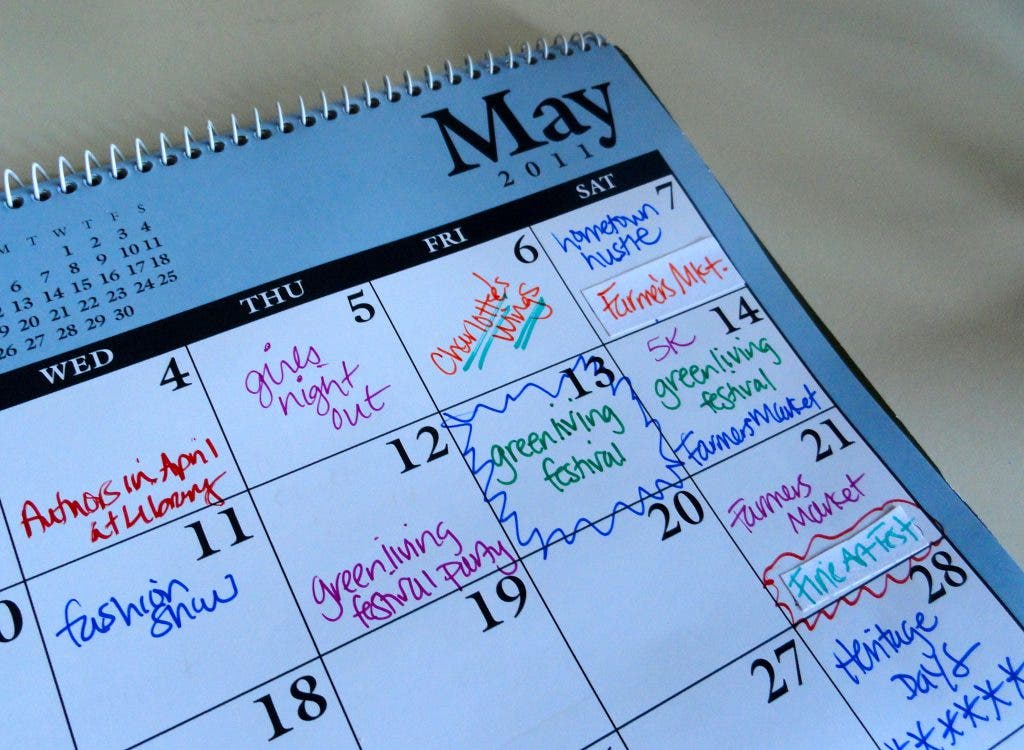 May
2011
M T W T F S
1 2 3 4
6 7 8 9 10 11
13 14 15 16 17 18
20 21 22 23 24 25
26 27 28 29 30
WED THU FRI SAT
4
Authors in April
at Library
5
girls
night
out
6
Charlotte's
Wings
7
hometown
hustle
Farmer's Mkt.
11
fashion
show
12
green living
festival party
13
green living
festival
14
5K
green living
festival
Farmers Market
18
19
20
21
Farmers
Market
Fine Art Fest
27
28
Heritage
Days